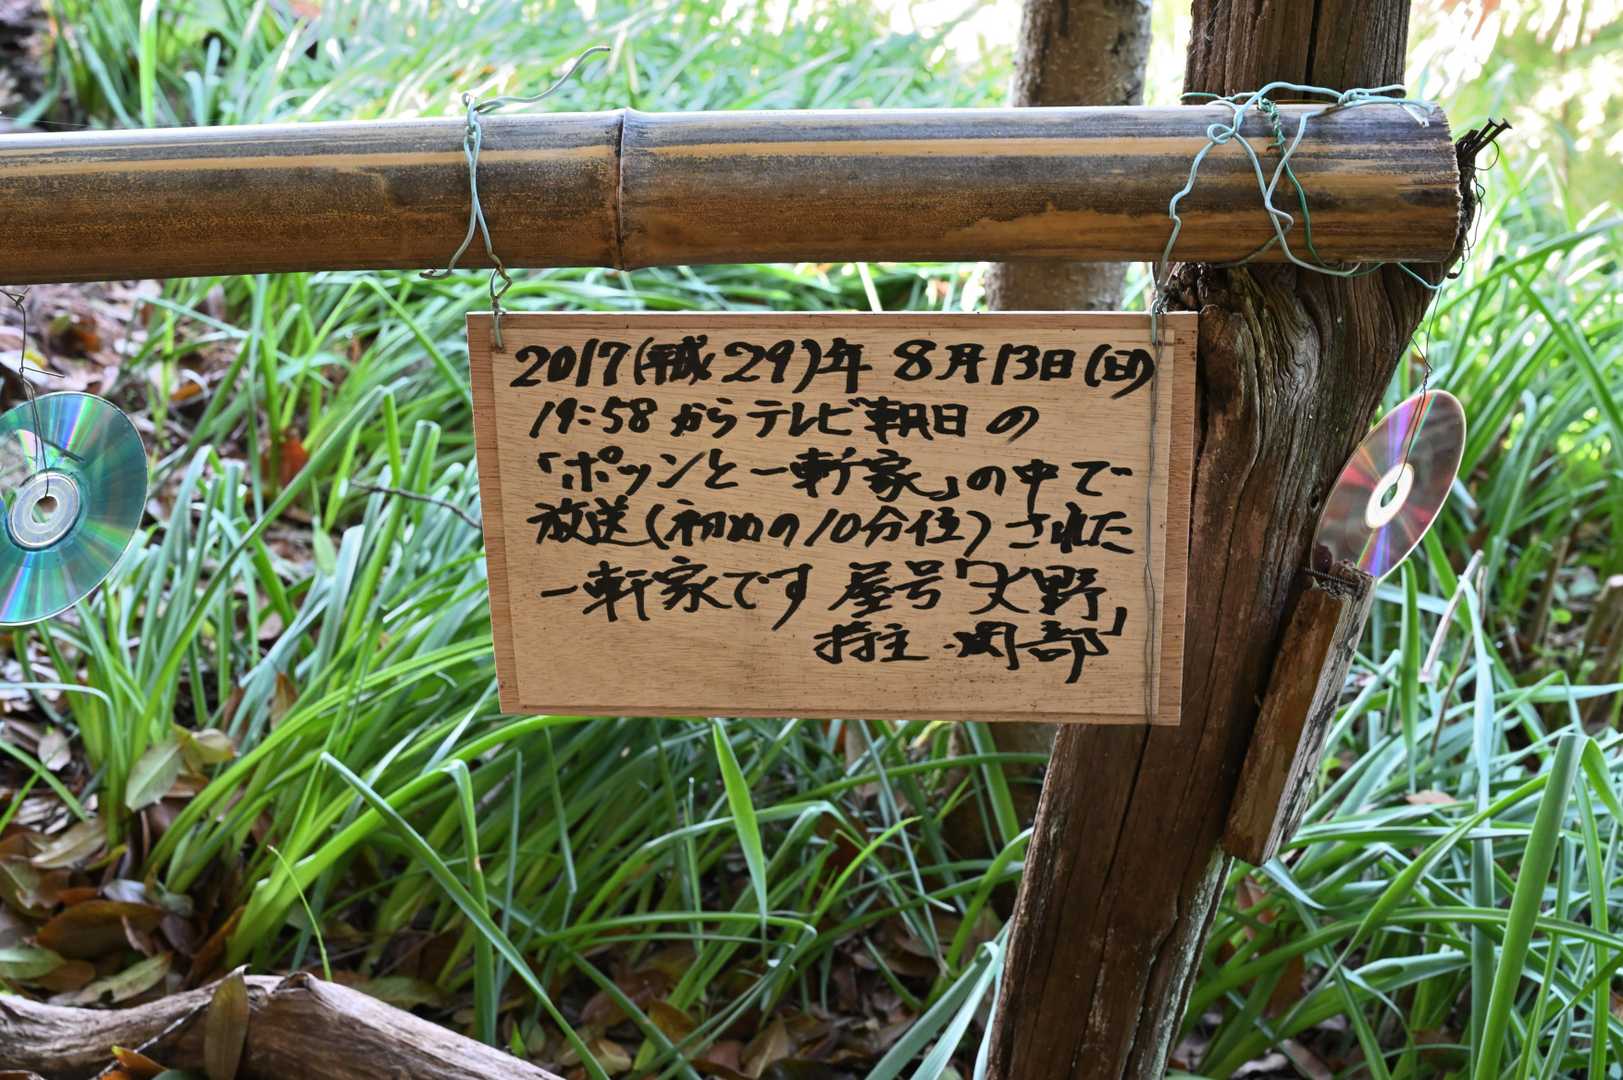 2017(平成29)年 8月13日(日)
19:58からテレビ朝日の
「ポツンと一軒家」の中で
放送(初めの10分位)された
一軒家です 屋号「大野」
持主・岡部